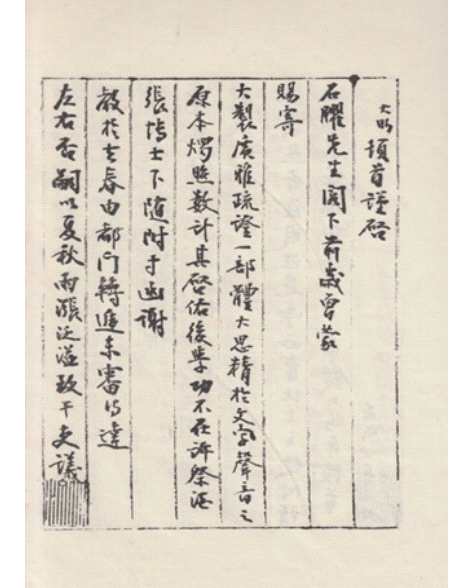 大昕頓首謹啓
石臞先生閣下前歲曾蒙
賜寄
大製廣雅疏證一部體大思精於文字聲音之
原本燭照數計其啓佑後學功不在許祭酒
張博士下隨附手函謝
教於去春由都門轉進未審得達
左右否嗣以夏秋雨漲泛溢致干吏議